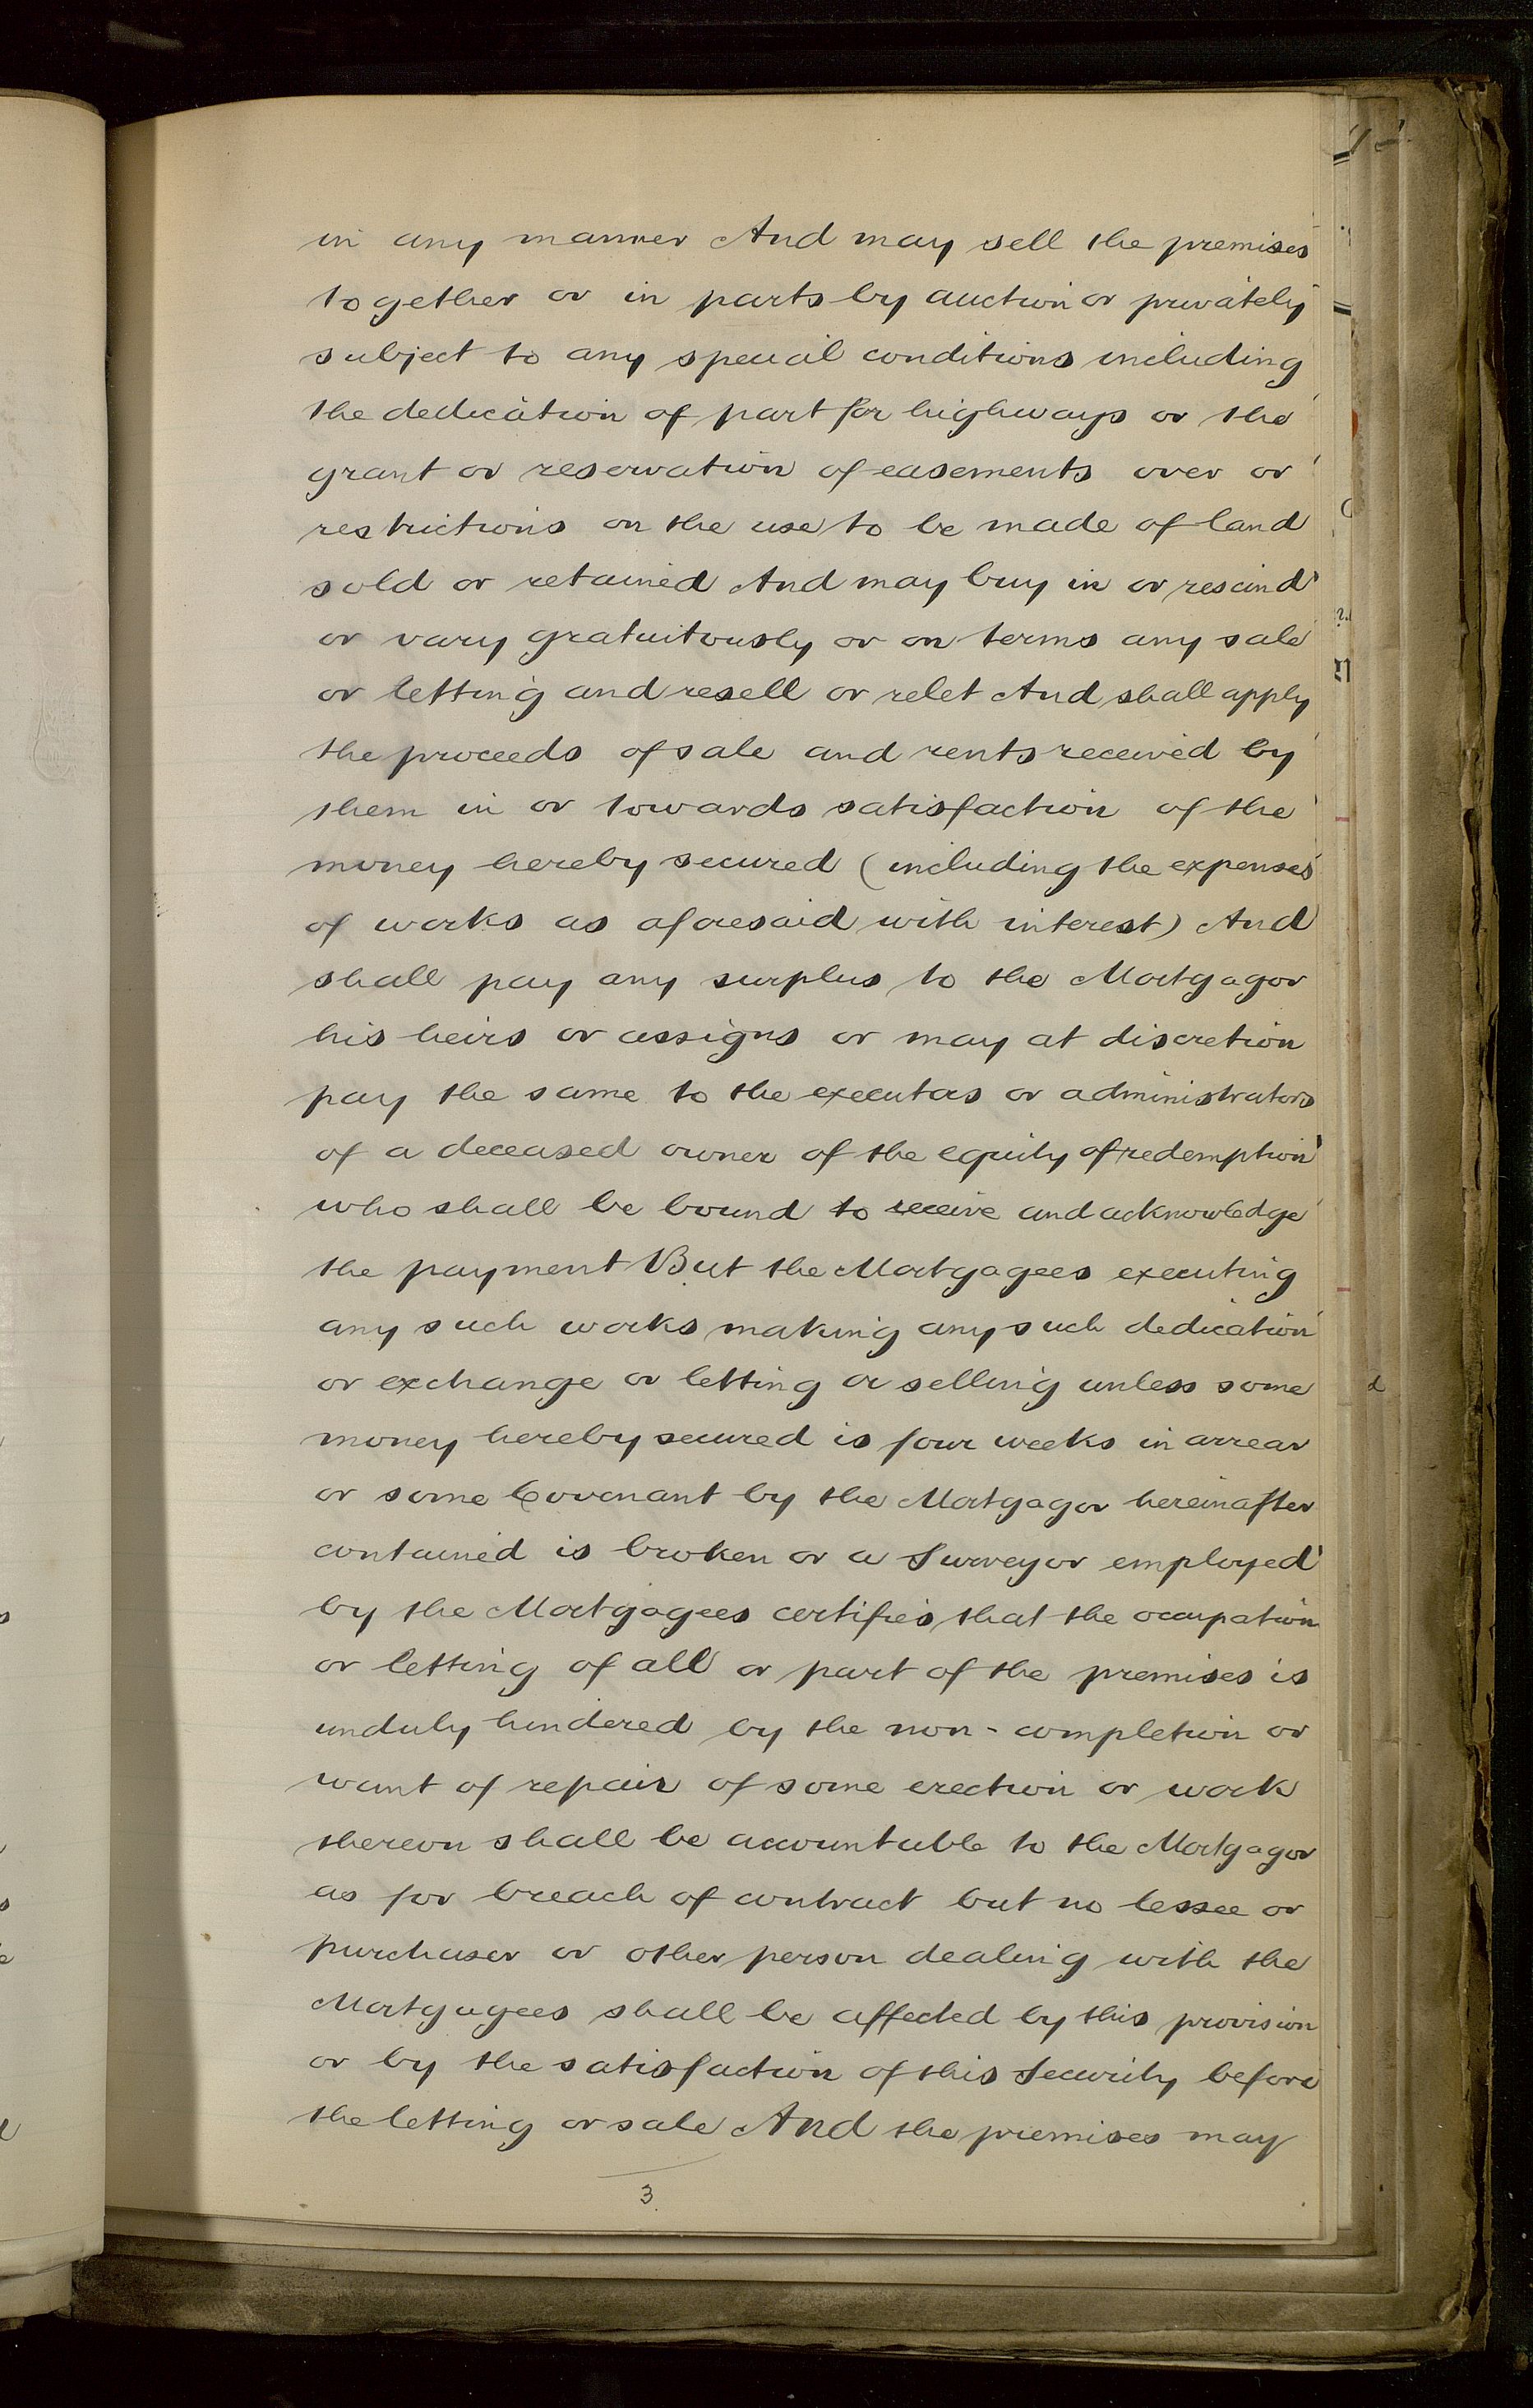 in any manner And may sell the premises
together or in parts by auction or privately
subject to any special conditions including
the dedication of part for highways or the
grant or reservation of easements over or
restrictions on the use to be made of land
sold or retained And may buy in or rescind
or vary gratuitously or on terms any sale
or letting and resell or relet And shall apply
the proceeds of sale and rents received by
them in or towards satisfaction of the
money hereby secured (including the expenses
of works as aforesaid with interest) And
shall pay any surplus to the Mortgagor
his heirs or assigns or may at discretion
pay the same to the executors or administrators
of a deceased owner of the equity of redemption
who shall be bound to receive and acknowledge
the payment But the Mortgagees executing
any such works making any such dedication
or exchange or letting or selling unless some
money hereby secured is four weeks in arrear
or some Covenant by the Mortgagor hereinafter
contained is broken or a Surveyor employed
by the Mortgagees certifies that the occupation
or letting of all or part of the premises is
unduly hindered by the non-completion or
want of repair of some erection or work
thereon shall be accountable to the Mortgagor
as for breach of contract but no lessee or
purchaser or other person dealing with the
Mortgagees shall be affected by this provision
or by the satisfaction of this Security before
the letting or sale And the premises may
3